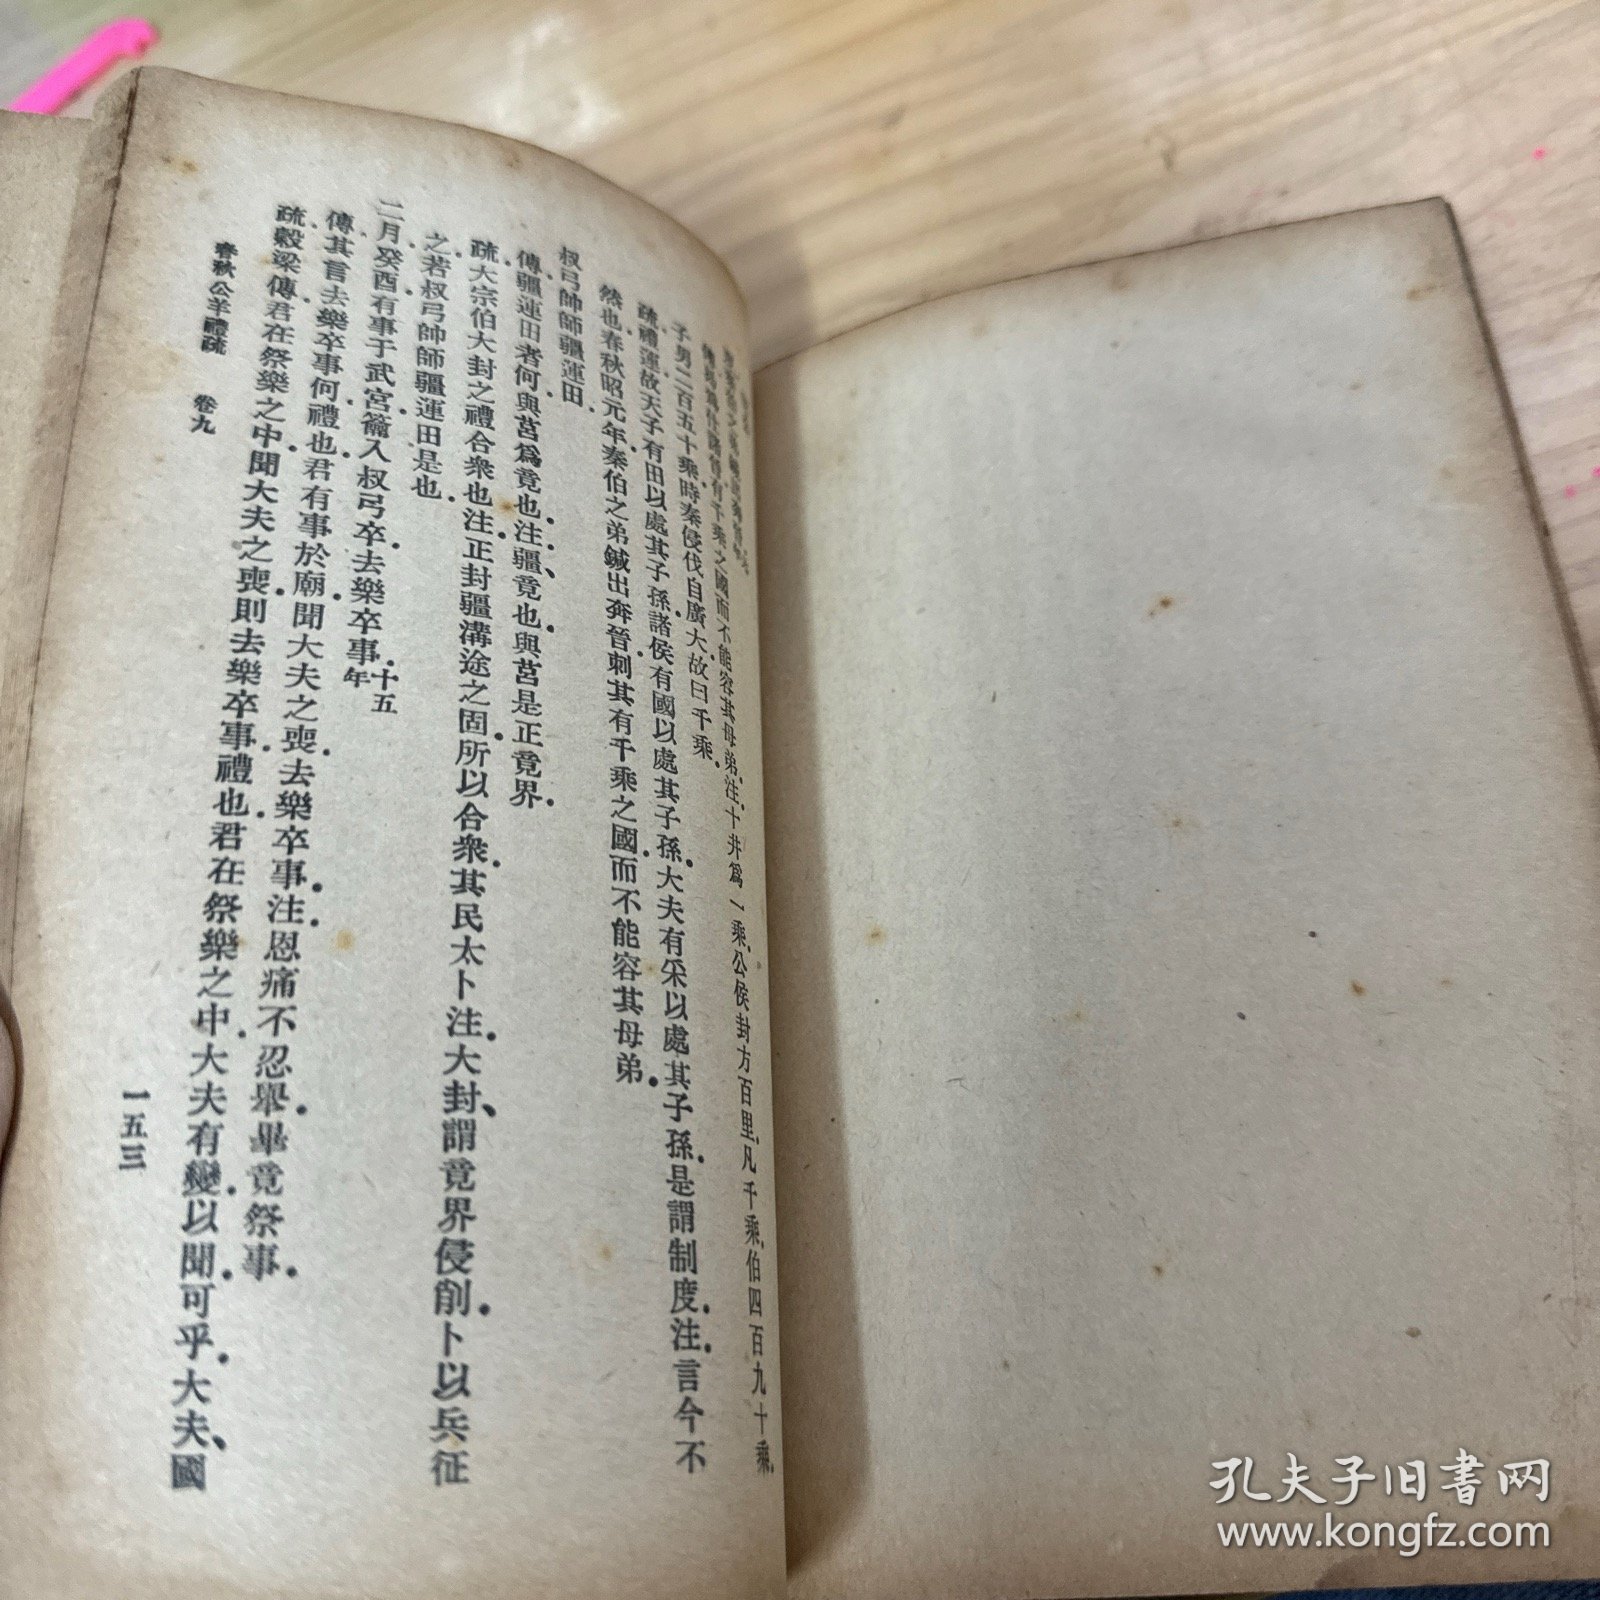 傳秦無大夫此何以書仕諸晉有千乘之國而不能容其母弟注十井爲一乘公侯封方百里凡千乘伯四百九十乘
子男二百五十乘時秦侵伐自廣大故曰千乘
疏禮運故天子有田以處其子孫諸侯有國以處其子孫大夫有采以處其子孫是謂制度注言今不
然也春秋昭元年秦伯之弟鍼出奔晉刺其有千乘之國而不能容其母弟
叔弓帥師疆運田
傳疆運田者何與莒爲竟也注疆竟也與莒是正竟界
疏大宗伯大封之禮合衆也注正封疆溝途之固所以合衆其民太卜注大封謂竟界侵削卜以兵征
之若叔弓帥師疆運田是也
二月癸酉有事于武宮籥入叔弓卒去樂卒事十五年
傳其言去樂卒事何禮也君有事於廟聞大夫之喪去樂卒事注恩痛不忍舉畢竟祭事
疏穀梁傳君在祭樂之中聞大夫之喪則去樂卒事禮也君在祭樂之中大夫有變以聞可乎大夫國
春秋公羊禮疏 卷九
一五三
孔夫子旧书网
www.kongfz.com